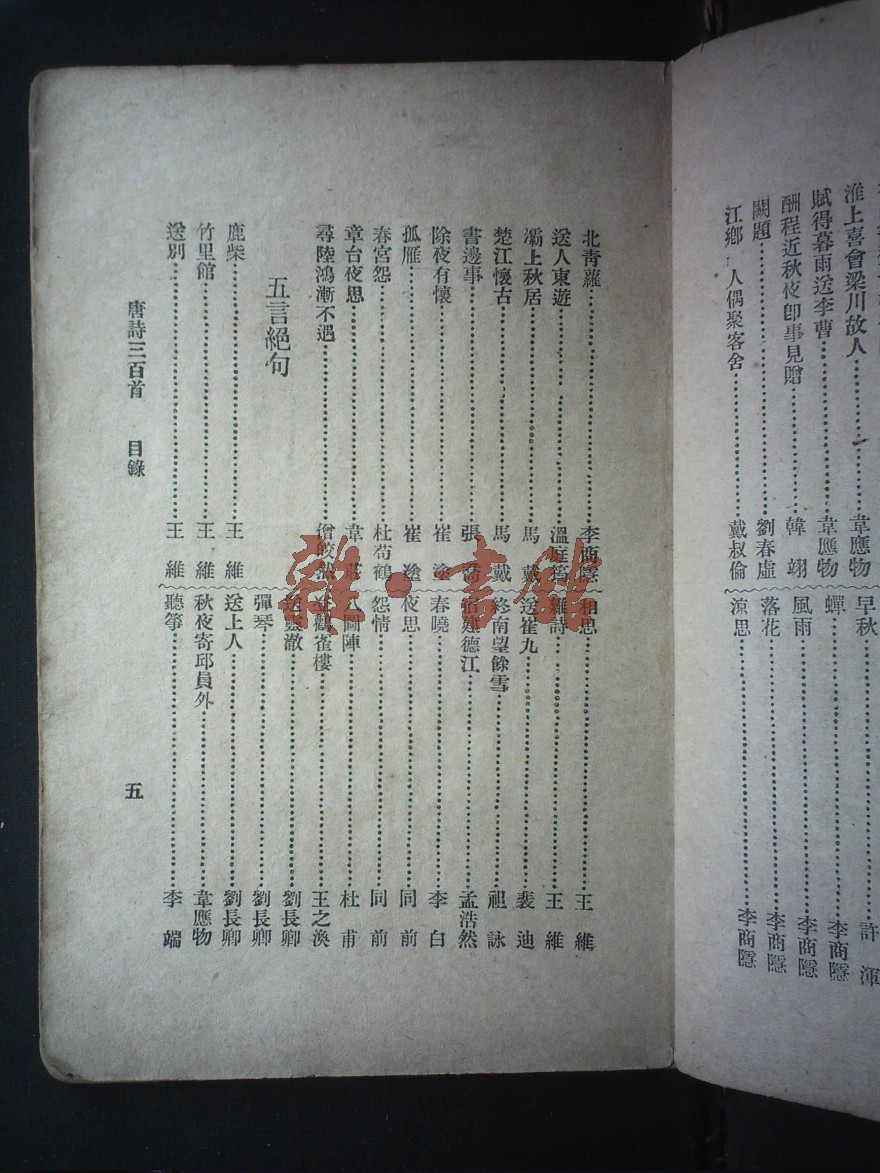 淮上喜會梁川故人 韋應物
賦得暮雨送李曹 韋應物
酬程近秋夜卽事見贈 韓翊
闕題 劉春虛
江鄉 人偶聚客舍 戴叔倫
早秋 許渾
蟬 李商隱
風雨 李商隱
落花 李商隱
涼思 李商隱
北青蘿 李商隱
送人東遊 溫庭筠
灞上秋居 馬戴
楚江懷古 馬戴
書邊事 張喬
除夜有懷 崔塗
孤雁 崔塗
春宮怨 杜荀鶴
章台夜思 韋莊
尋陸鴻漸不遇 僧皎然
五言絕句
鹿柴 王維
竹里館 王維
送別 王維
相思 王維
雜詩 王維
送崔九 裴迪
終南望餘雪 祖詠
宿建德江 孟浩然
春曉 李白
夜思 同前
怨情 同前
八圖陣 杜甫
登鸛雀樓 王之渙
送靈澈 劉長卿
彈琴 劉長卿
送上人 劉長卿
秋夜寄邱員外 韋應物
聽箏 李端
唐詩三百首 目錄 五
雜·書館